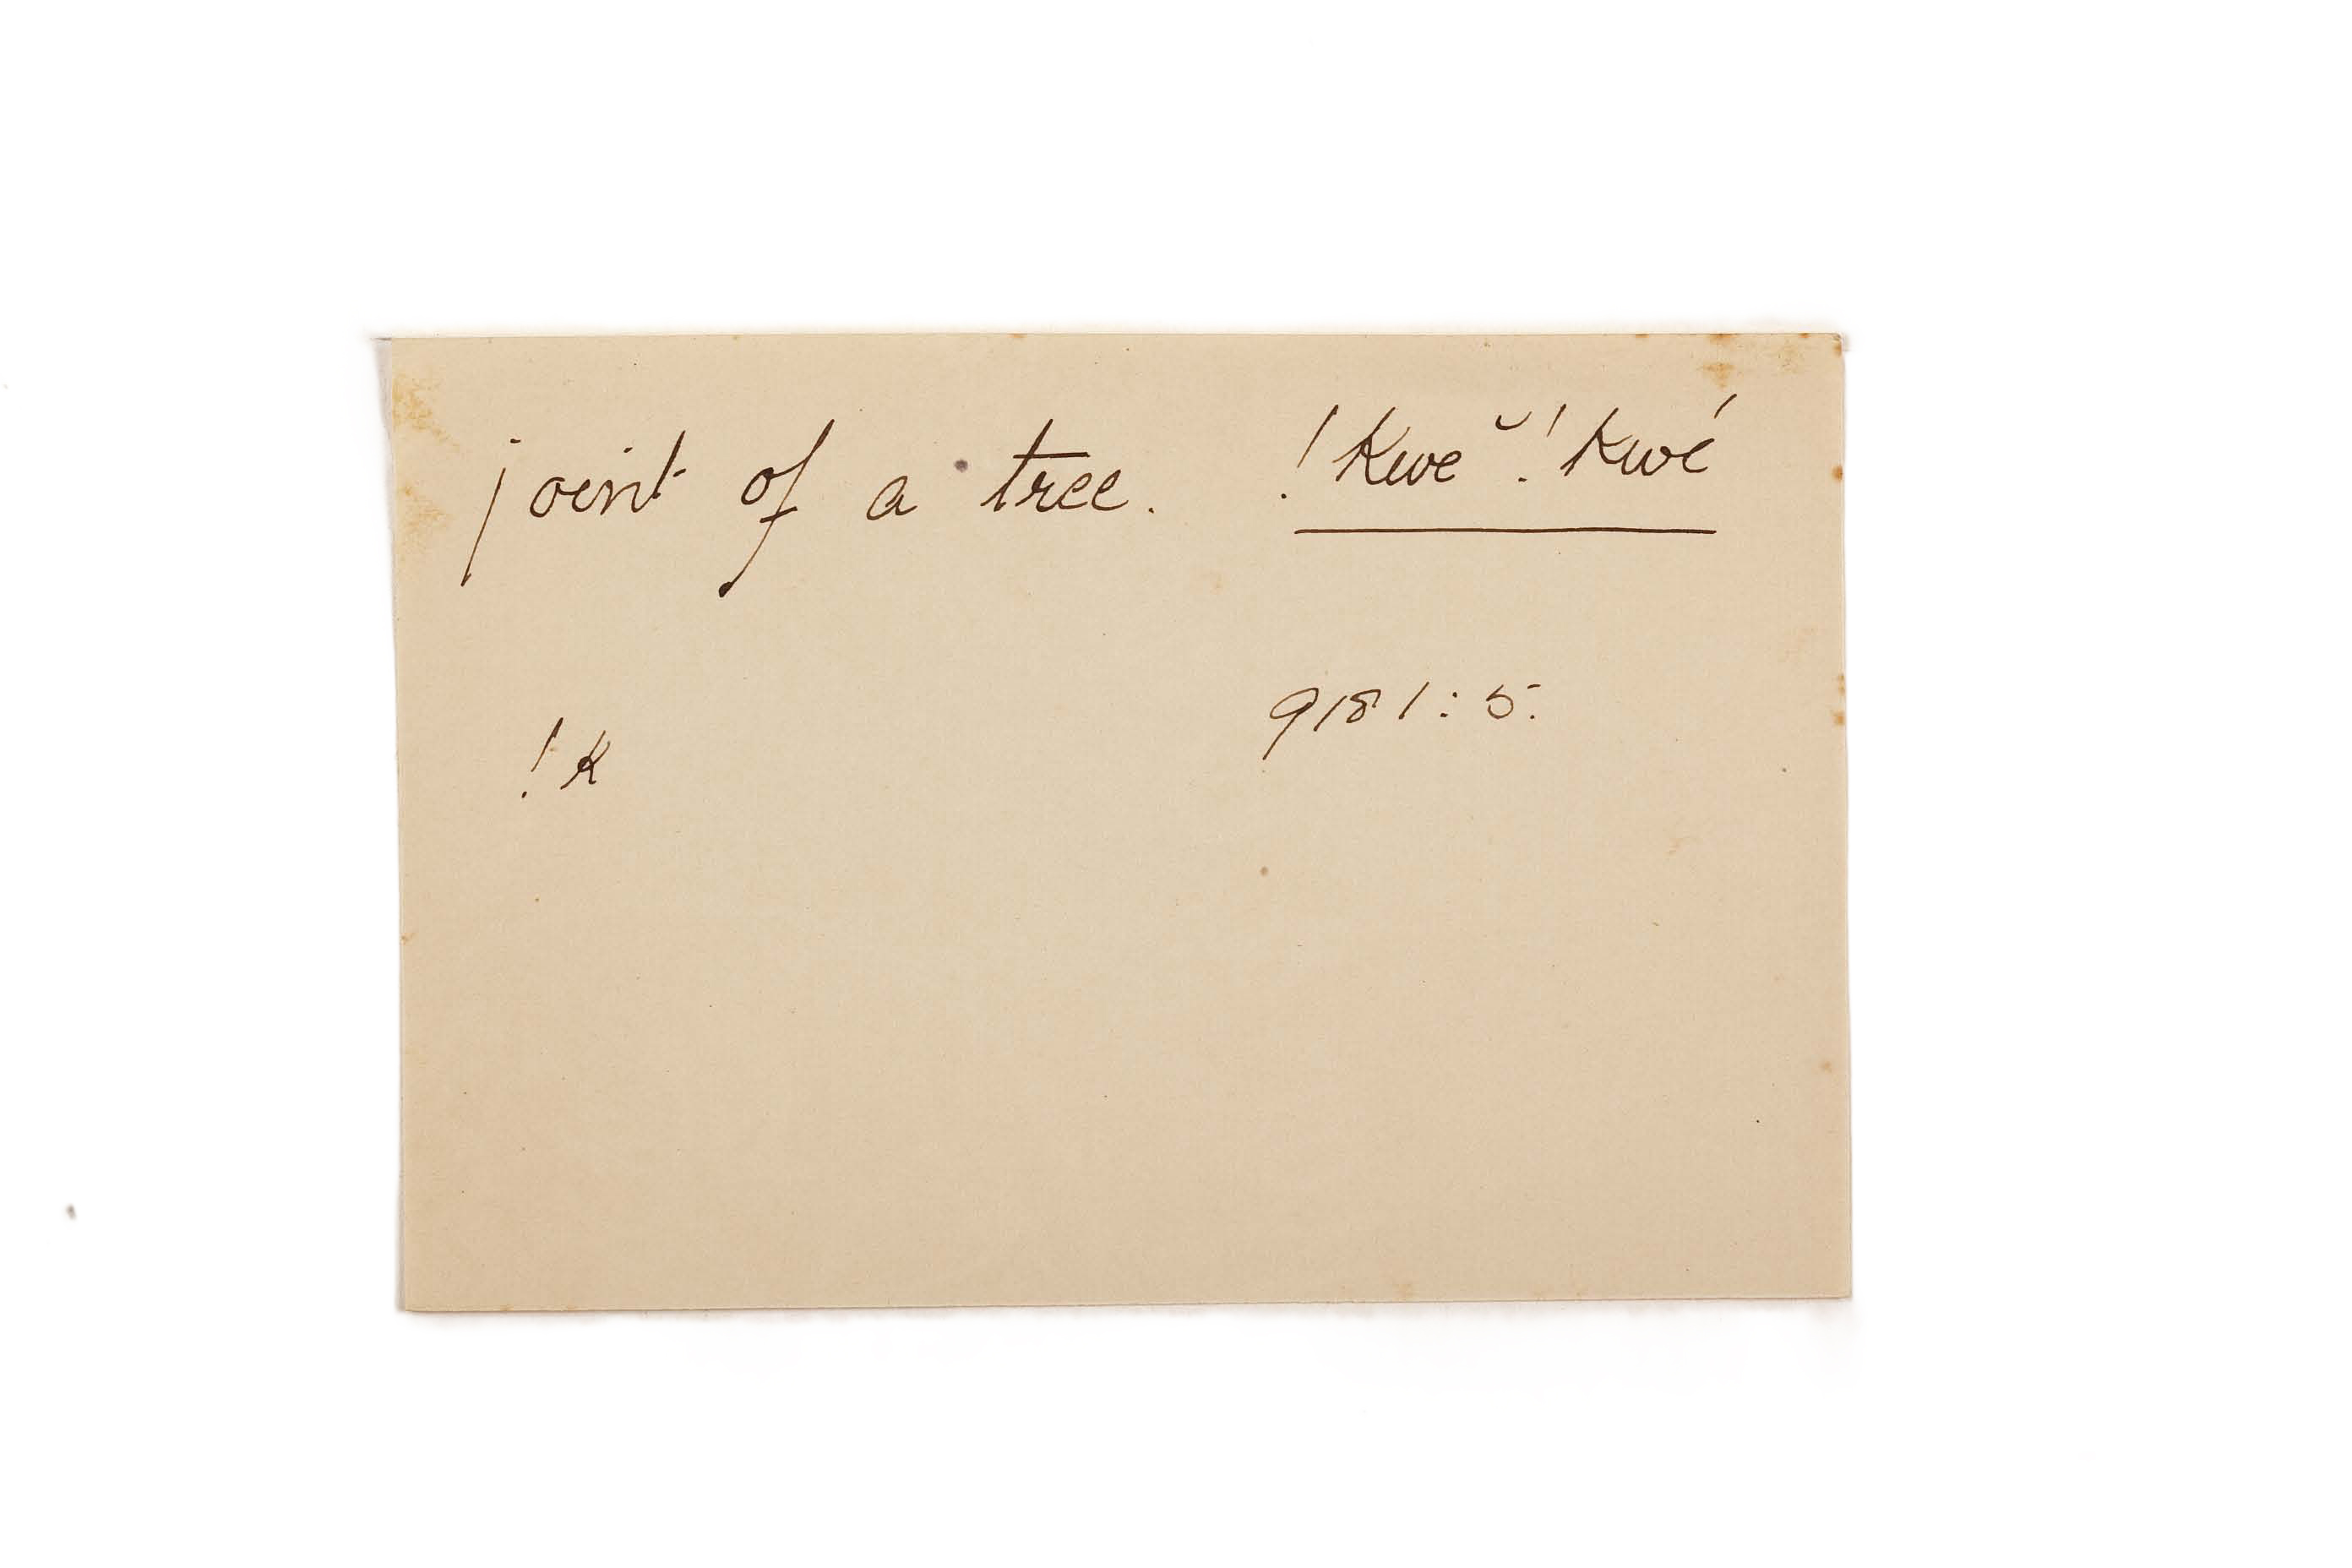 joint of a tree. !kwĕ!kwé
9181:5.
!k